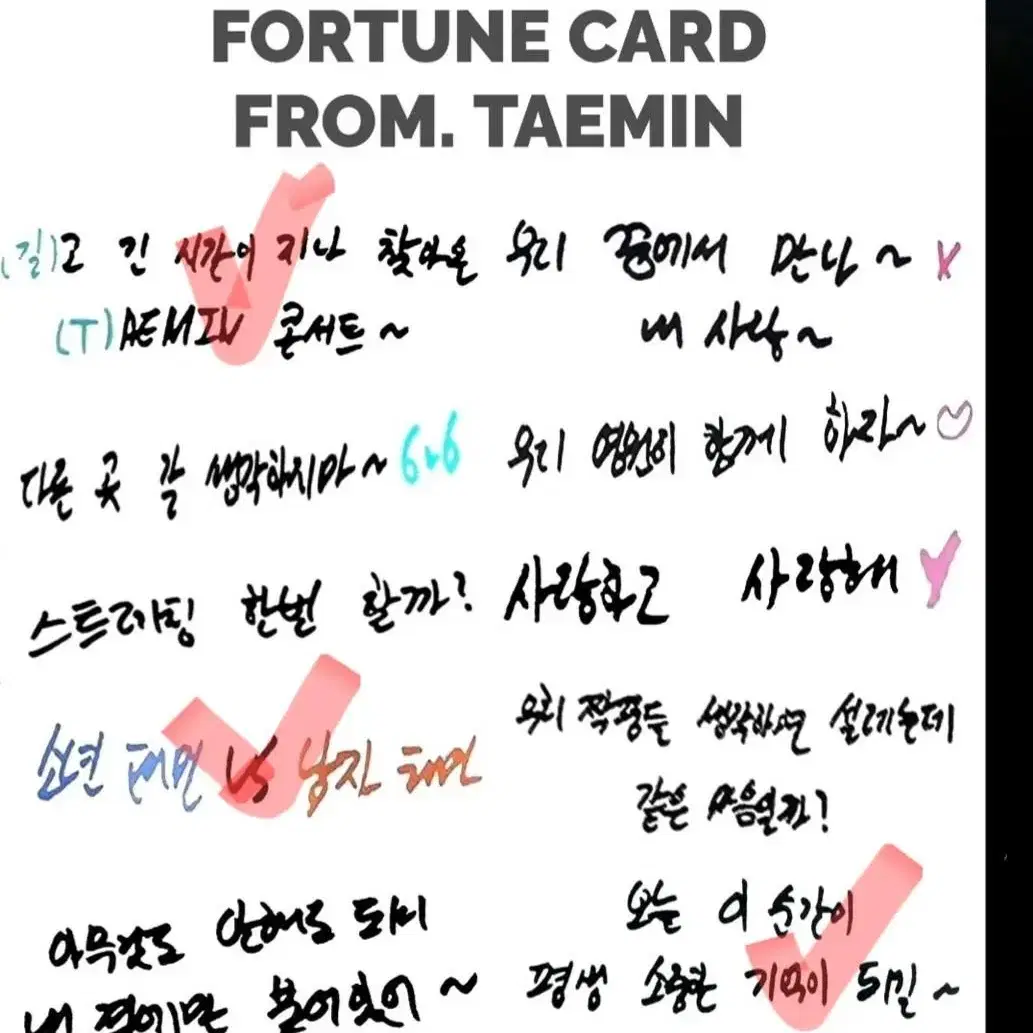 FORTUNE CARD
FROM. TAEMIN
(길)고 긴 시간이 지나 찾아온
(T)AEMIN 콘서트~
우리 꿈에서 만나~
내 사랑~
다른 곳 갈 생각하지마~ 6.6
우리 영원히 함께 하자~♡
스트레칭 한번 할까?
사랑하고 사랑해
소년 태민 VS 남자 태민
우리 짝꿍들 생각하면 설레는데
같은 마음일까?
아무것도 안해도 되니
내 곁에만 붙어있어~
오늘 이 순간이
평생 소중한 기억이 되길~